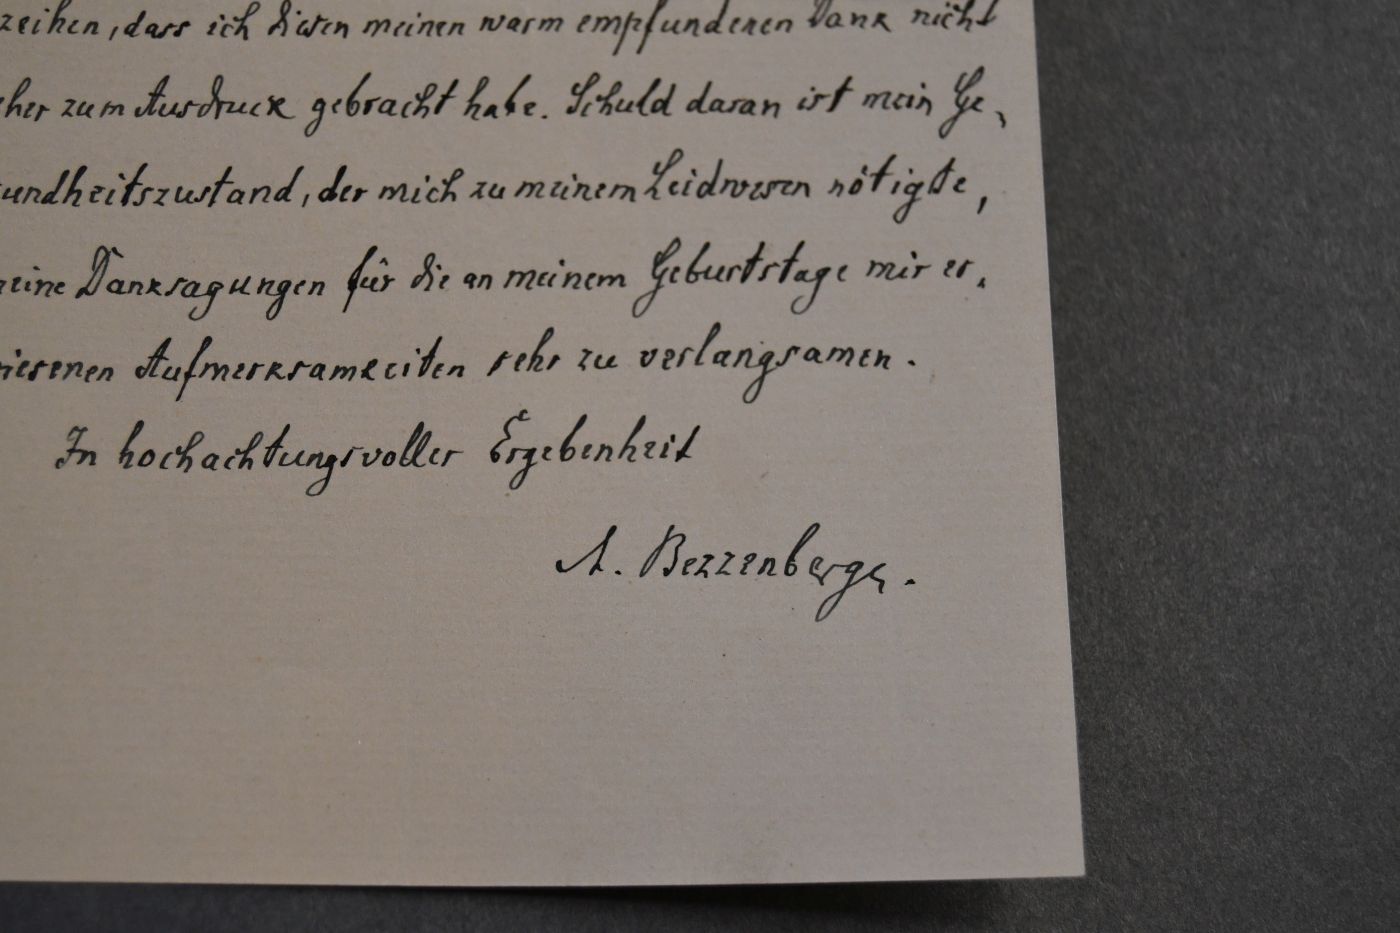 zeihen, dass ich diesen meinen warm empfundenen Dank nicht
eher zum Ausdruck gebracht habe. Schuld daran ist mein Ge-
sundheitszustand, der mich zu meinem Leidwesen nötigte,
meine Danksagungen für die an meinem Geburtstage mir er-
wiesenen Aufmerksamkeiten sehr zu verlangsamen.
In hochachtungsvoller Ergebenheit
A. Bezzenberger.